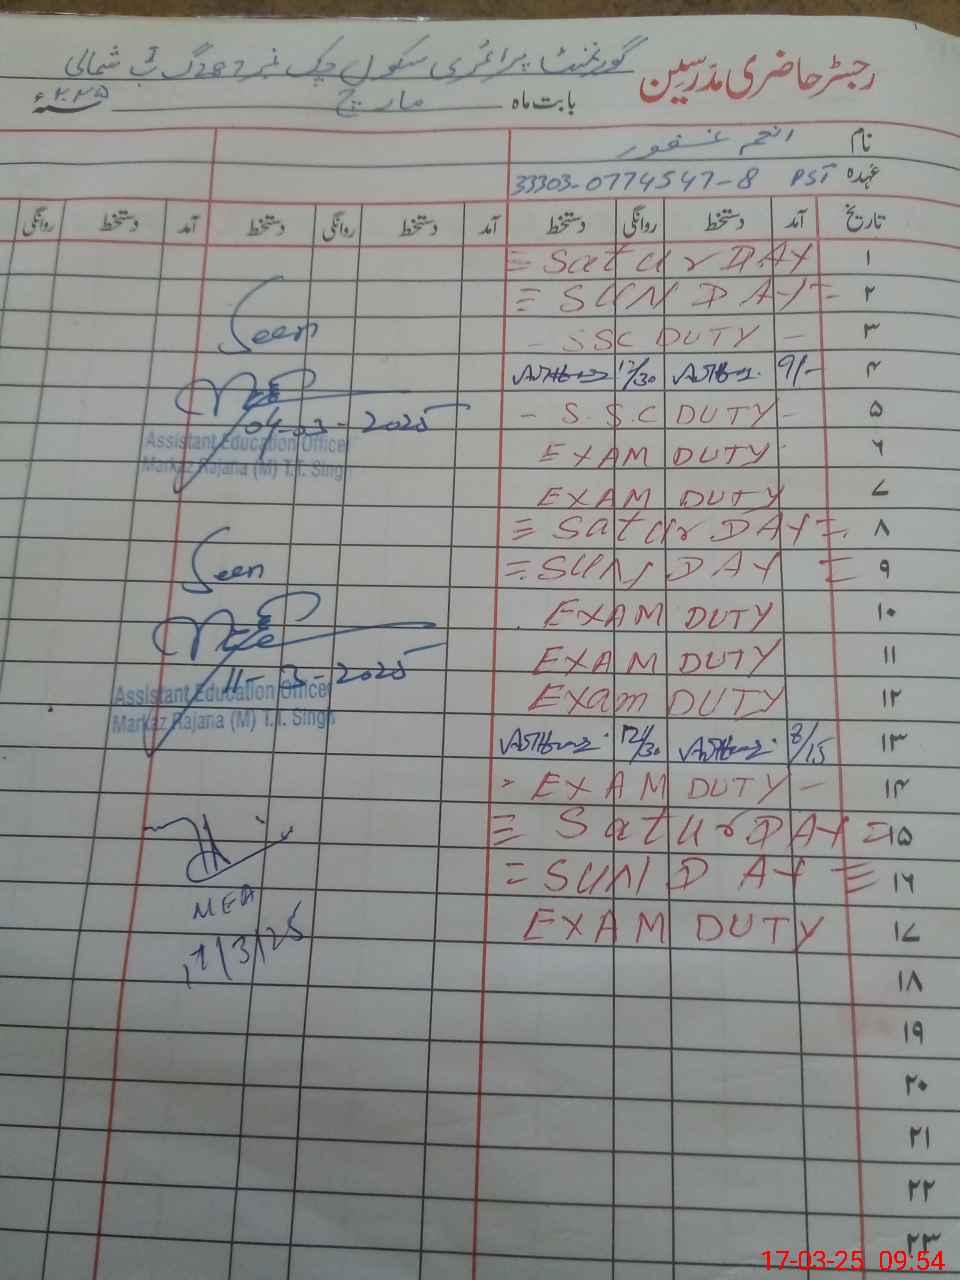 رجسٹر حاضری مدرسین گورنمنٹ پرائمری سکول چک نمبر 287 گ ب شمالی
بابت ماہ مارچ ۲۰۲۵ء
نام انجم غفور
عہدہ PST 33303-0774547-8
تاریخ آمد دستخط روانگی دستخط آمد دستخط روانگی دستخط آمد دستخط روانگی
۱ = SaturDAY
۲ = SUNDAY =
۳ - SSC DUTY -
۴ 9/- 12/30
۵ - S.S.C DUTY -
۶ EXAM DUTY
۷ EXAM DUTY
۸ = SaturDAY =
۹ = SUNDAY =
۱۰ EXAM DUTY
۱۱ EXAM DUTY
۱۲ Exam DUTY
۱۳ 8/15 12/30
۱۴ EXAM DUTY -
۱۵ = SaturDAY =
۱۶ = SUNDAY =
۱۷ EXAM DUTY
۱۸
۱۹
۲۰
۲۱
۲۲
۲۳
Seen
04-03-2025
Assistant Education Officer
Markaz Rajana (M) T.T. Singh
Seen
11-3-2025
Assistant Education Officer
Markaz Rajana (M) T.T. Singh
MEA
17/3/25
17-03-25 09:54